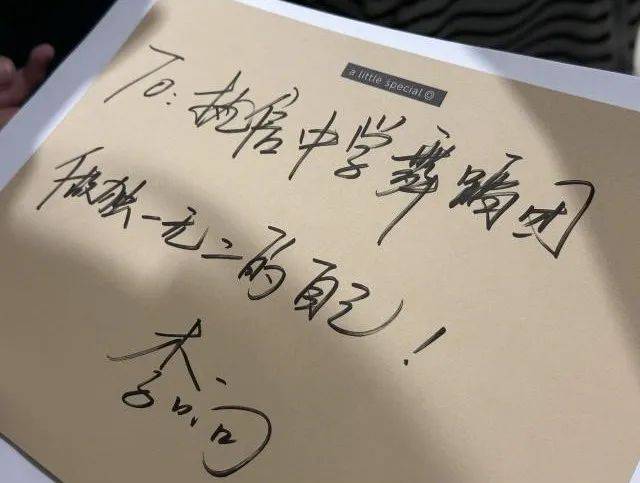 a little special
To: 执信中学舞蹈团
做独一无二的自己！
李响